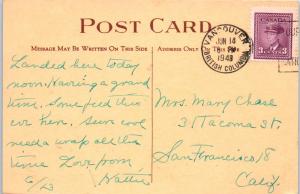 POST CARD
MESSAGE MAY BE WRITTEN ON THIS SIDE
ADDRESS ONLY
VANCOUVER
JUN 14
PM
1948
BRITISH COLUMBIA
CANADA
3 3
Landed here today
noon. Having a grand
time. Some feed this
over here. Seen cool
need a wrap all the
time Love from
Hattie
6/13
Mrs. Mary Chase
31 Tacoma St.
San Francisco 18
Calif.